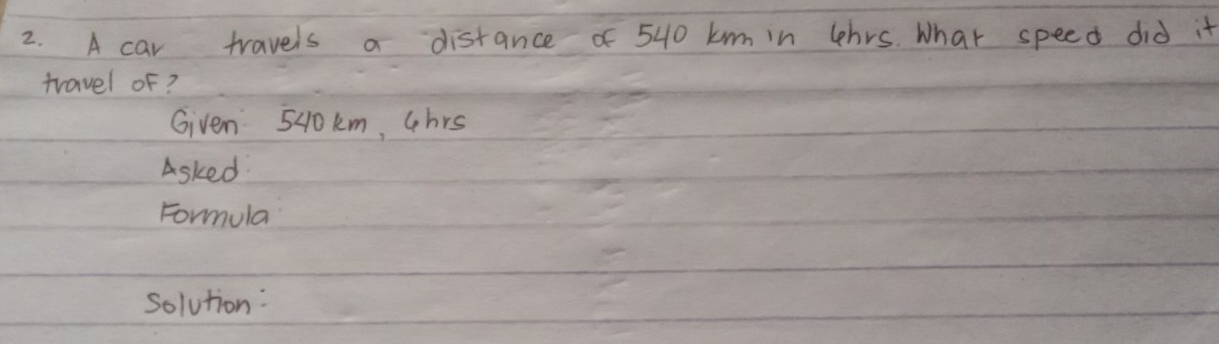 2. A car travels a distance of 540 km in 6hrs. What speed did it
travel of?
Given: 540 km, 6hrs
Asked:
Formula
Solution: